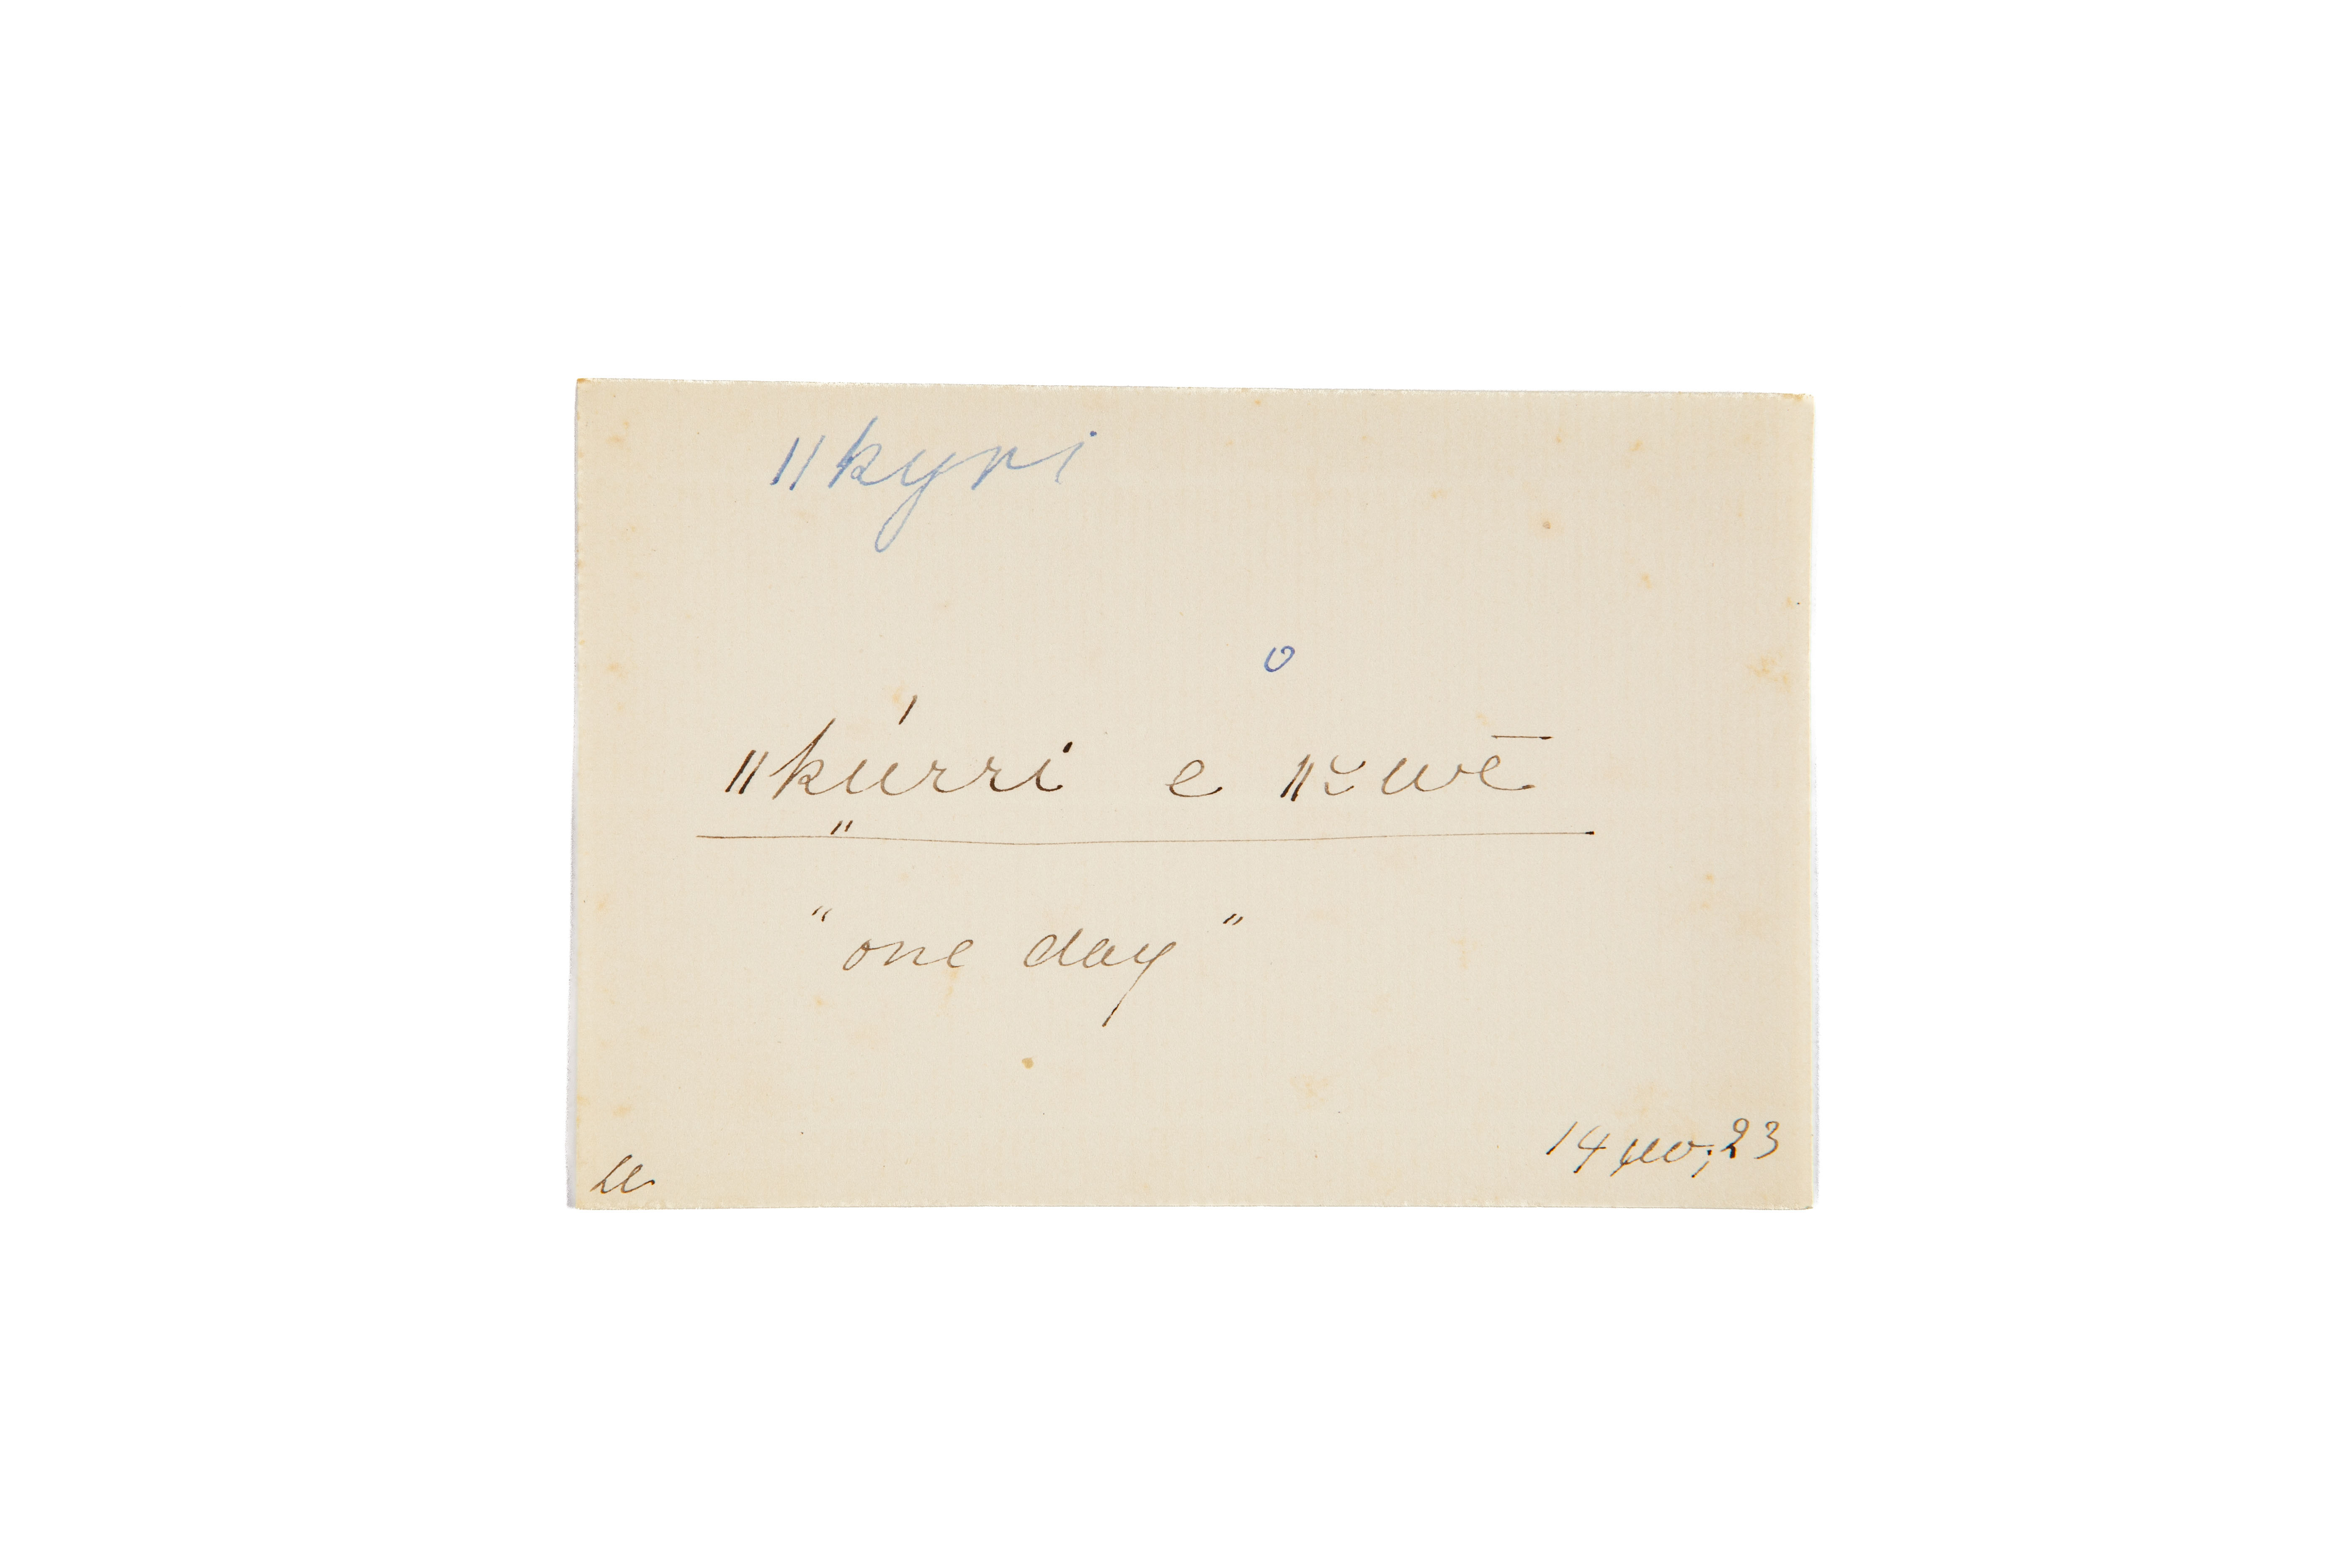 ǁkyri
o
ǁkúrri e ǁ˘uwē
"
"one day"
14 23